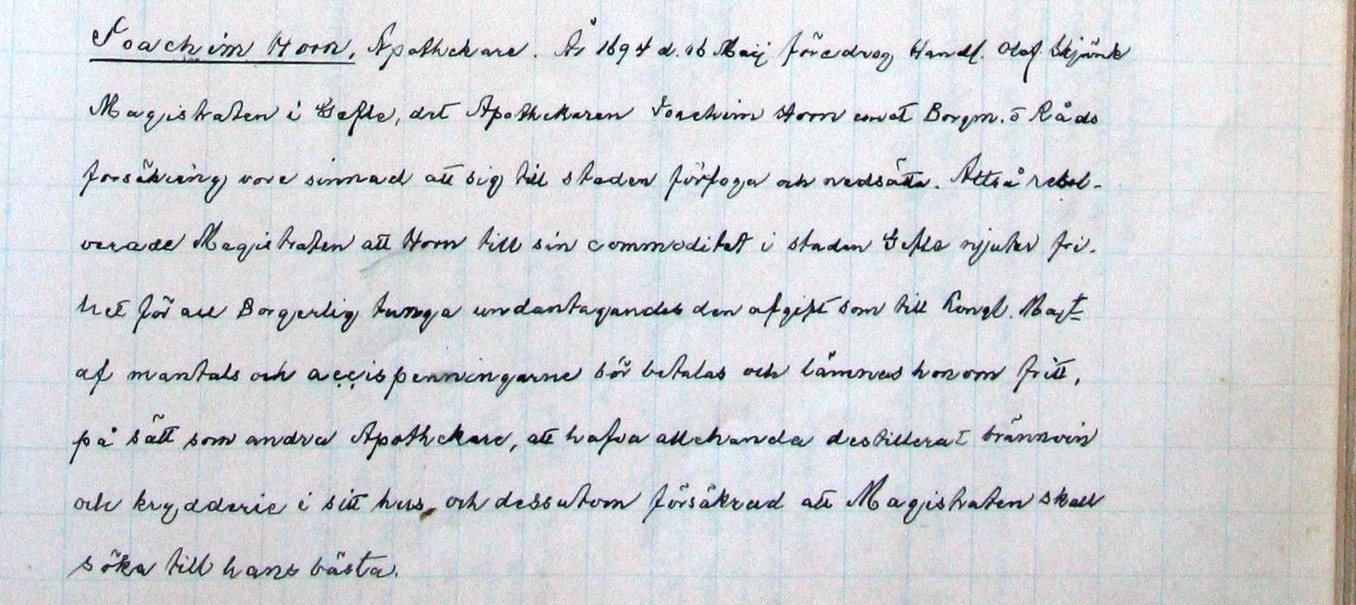 Joachim Horn, Apothekare. År 1694 d. 16 Maij föredrog Handl. Olof Skjänk
Magistraten i Gefle, det Apothekaren Joachim Horn emot Borgm. o Råds
försäkring vore sinnad att sig till staden förfoga och nedsätta. Alltså resol-
verade Magistraten att Horn till sin commoditet i staden Gefle njuter fri-
het för all Borgerlig tunga undantagandes den afgift som till Kongl. Majt
af mantals och accispenningarne bör betalas och lämnas honom fritt,
på sätt som andra Apothekare, att hafva allehanda destillerat brännvin
och krydderie i sitt hus, och dessutom försäkrad att Magistraten skall
söka till hans bästa.